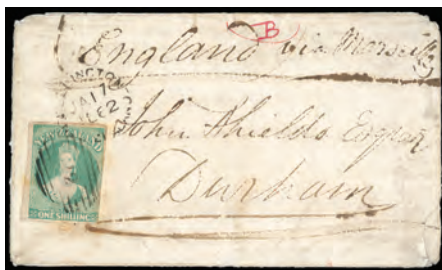 B
England via Marseilles
NGTON
JA 17
62
John Shields Esquire
Durham
NEW ZEALAND
ONE SHILLING